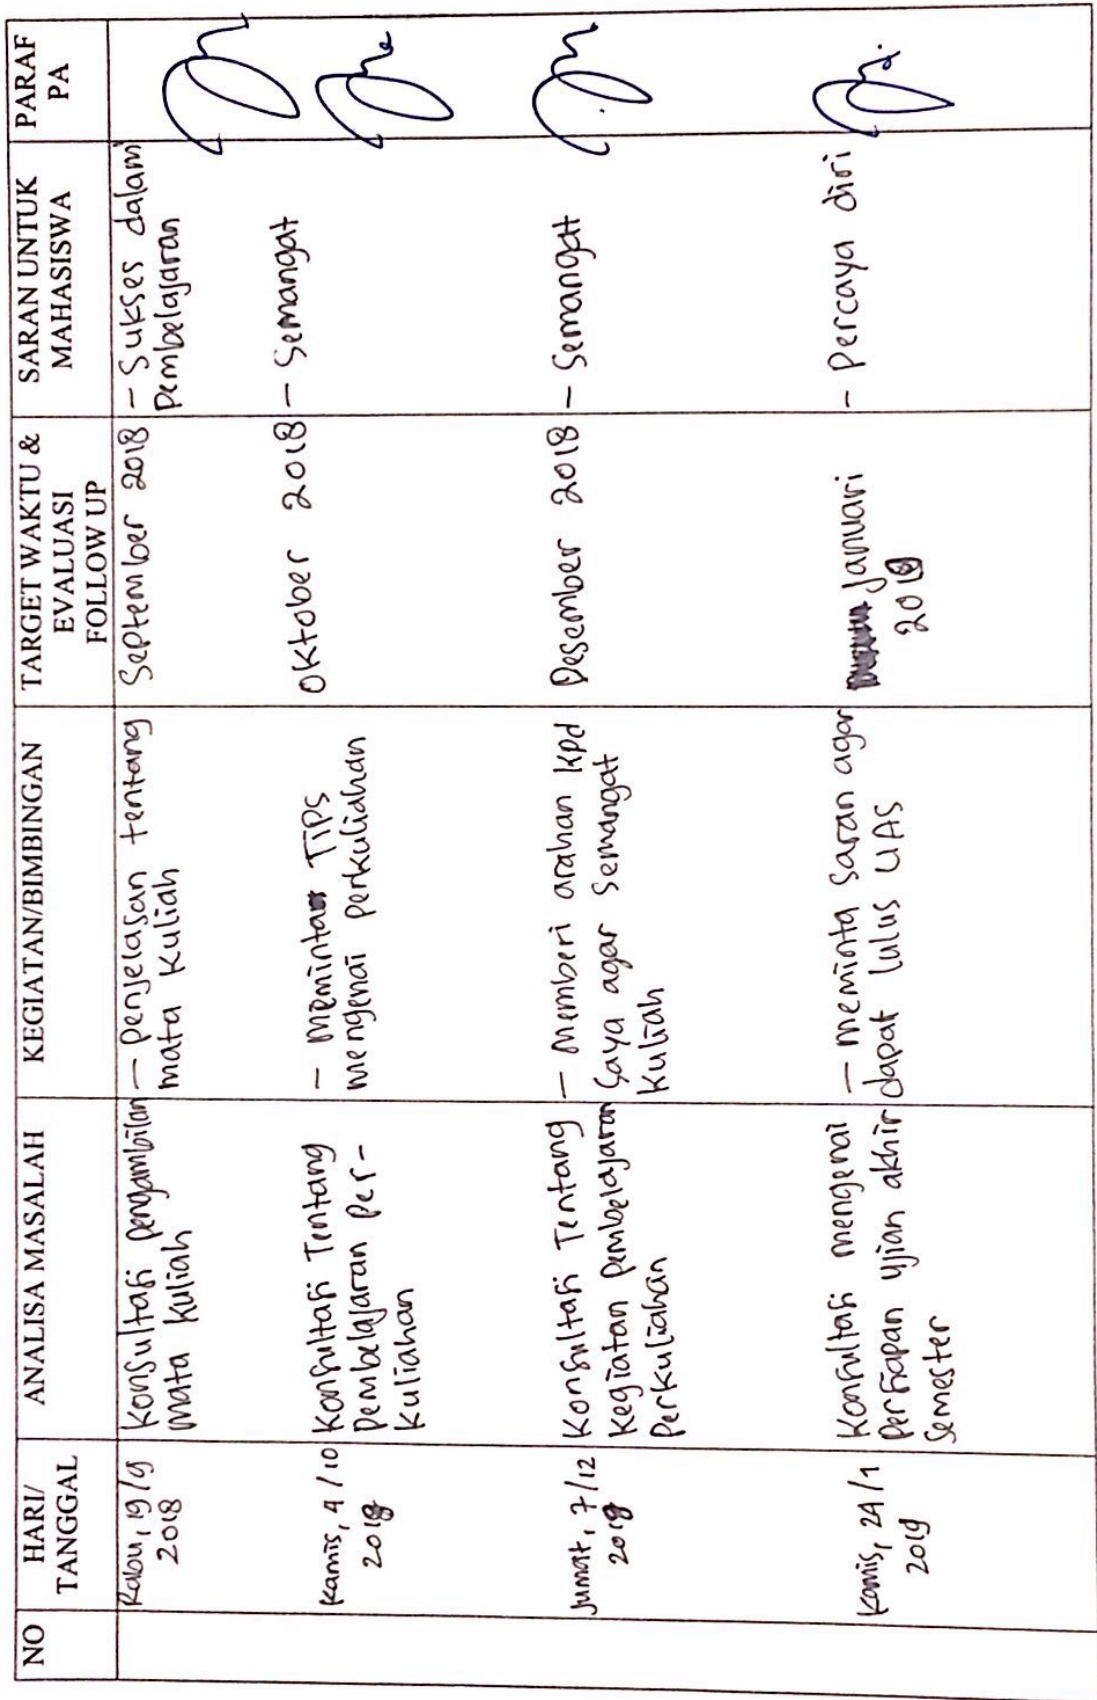 NO
HARI/
TANGGAL
ANALISA MASALAH
KEGIATAN/BIMBINGAN
TARGET WAKTU &
EVALUASI
FOLLOW UP
SARAN UNTUK
MAHASISWA
PARAF
PA
Rabu, 19/9
2018
Konsultasi pengambilan
mata kuliah
– penjelasan tentang
mata kuliah
September 2018
– Sukses dalam
pembelajaran
Kamis, 4/10
2018
Konsultasi Tentang
pembelajaran per-
kuliahan
– meminta TIPS
mengenai perkuliahan
Oktober 2018
– Semangat
Jumat, 7/12
2018
Konsultasi Tentang
kegiatan pembelajaran
perkuliahan
– Memberi arahan kpd
saya agar semangat
kuliah
Desember 2018
– Semangat
Kamis, 24/1
2019
Konsultasi mengenai
persiapan ujian akhir
Semester
– meminta saran agar
dapat lulus UAS
Januari
2019
– Percaya diri